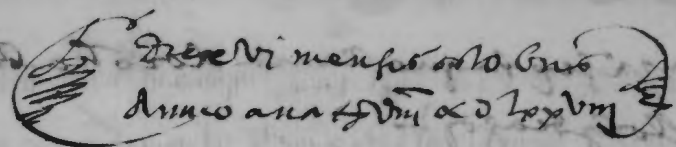 Die xvi mensis octobris
Anno a nat dni ∞ D lxxviii